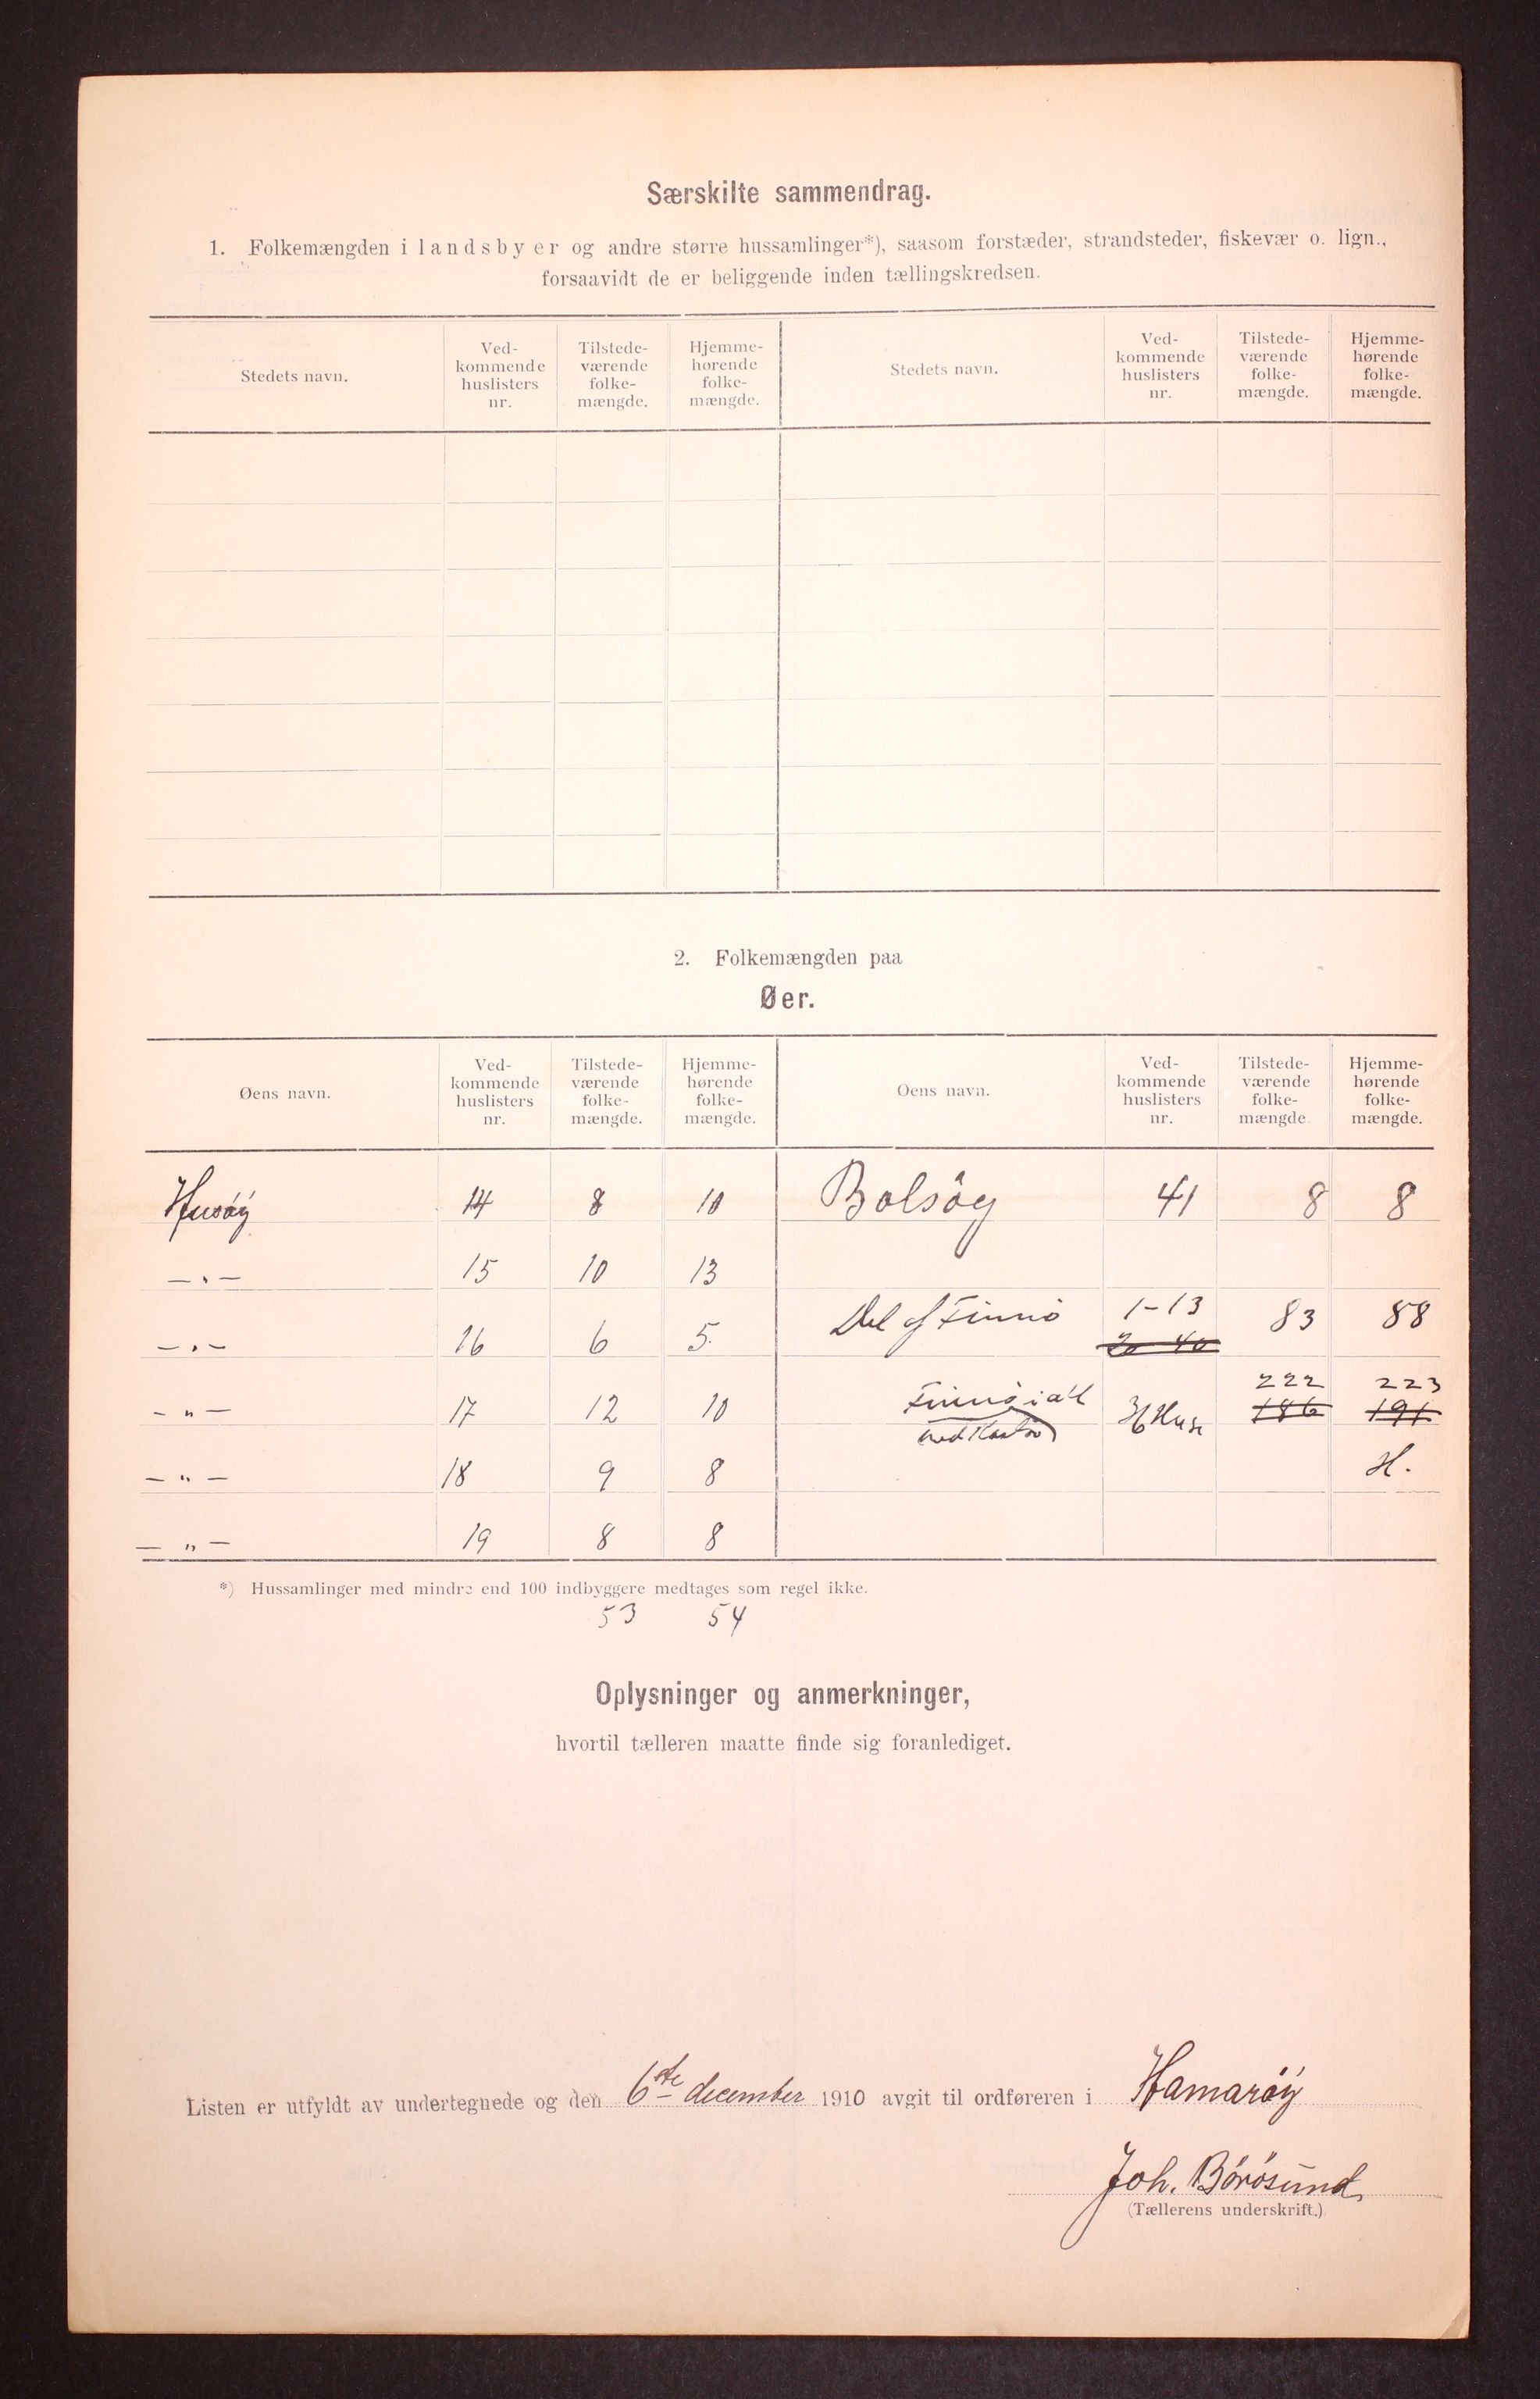 Særskilte sammendrag.
1. Folkemængden i landsbyer og andre større hussamlinger*), saasom forstæder, strandsteder, fiskevær o. lign.,
forsaavidt de er beliggende inden tællingskredsen.
Stedets navn. Ved-kommende huslisters nr. Tilstede-værende folke-mængde. Hjemme-hørende folke-mængde. Stedets navn. Ved-kommende huslisters nr. Tilstede-værende folke-mængde. Hjemme-hørende folke-mængde.
2. Folkemængden paa
Øer.
Øens navn. Ved-kommende huslisters nr. Tilstede-værende folke-mængde. Hjemme-hørende folke-mængde. Øens navn. Ved-kommende huslisters nr. Tilstede-værende folke-mængde Hjemme-hørende folke-mængde.
Husöy 14 8 10 Bolsöy 41 8 8
— " — 15 10 13
— " — 16 6 5 Del af Finnö 1-13 83 88
20 40
— " — 17 12 10 Finnö i alt 36 Huse 222 223
186 191
— " — 18 9 8 H.
— " — 19 8 8
*) Hussamlinger med mindre end 100 indbyggere medtages som regel ikke.
53 54
Oplysninger og anmerkninger,
hvortil tælleren maatte finde sig foranlediget.
Listen er utfyldt av undertegnede og den 6te december 1910 avgit til ordføreren i Hamaröy
Joh. Börösund
(Tællerens underskrift.)